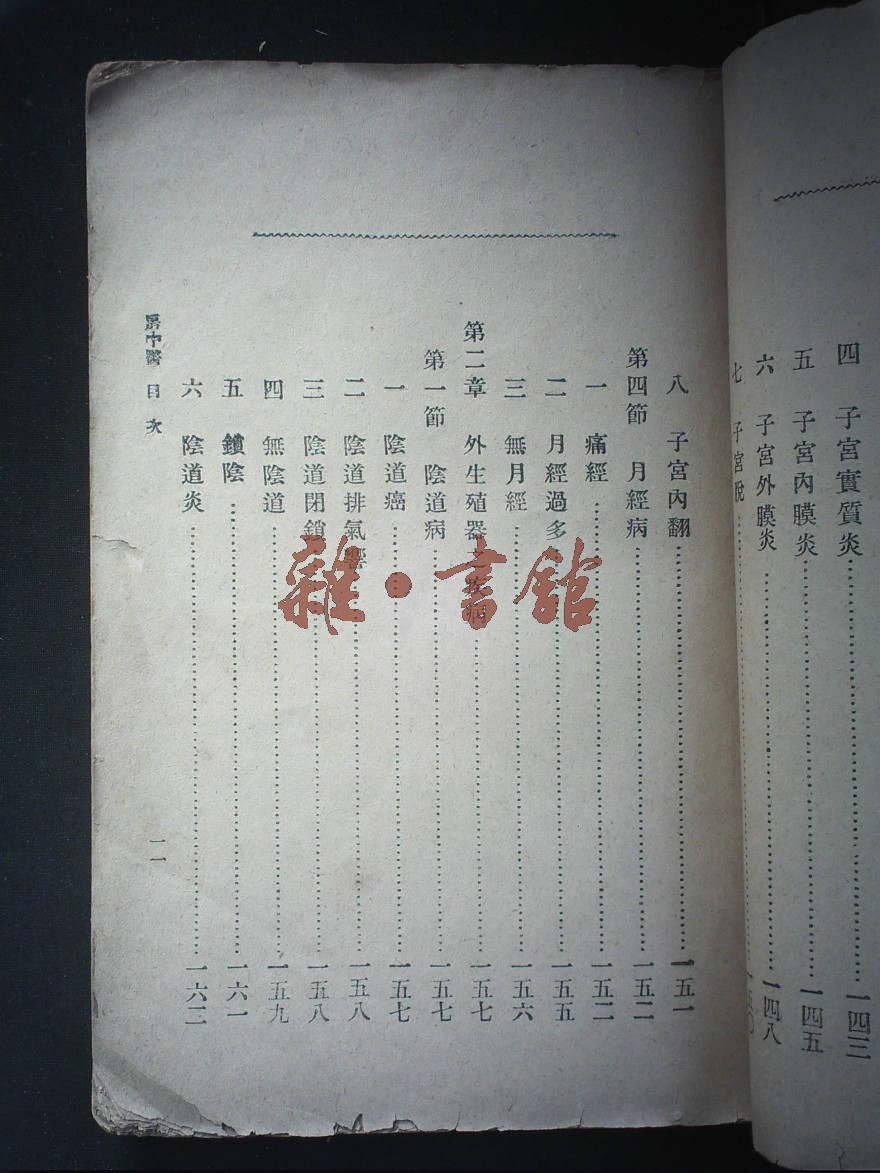 四 子宮實質炎 一四三
五 子宮內膜炎 一四五
六 子宮外膜炎 一四八
七 子宮脫
八 子宮內翻 一五一
第四節 月經病 一五二
一 痛經 一五二
二 月經過多 一五五
三 無月經 一五六
第二章 外生殖器之疾病 一五七
第一節 陰道病 一五七
一 陰道癌 一五七
二 陰道排氣響 一五八
三 陰道閉鎖 一五八
四 無陰道 一五九
五 鎖陰 一六一
六 陰道炎 一六二
房中醫 目次
二
雜·書館